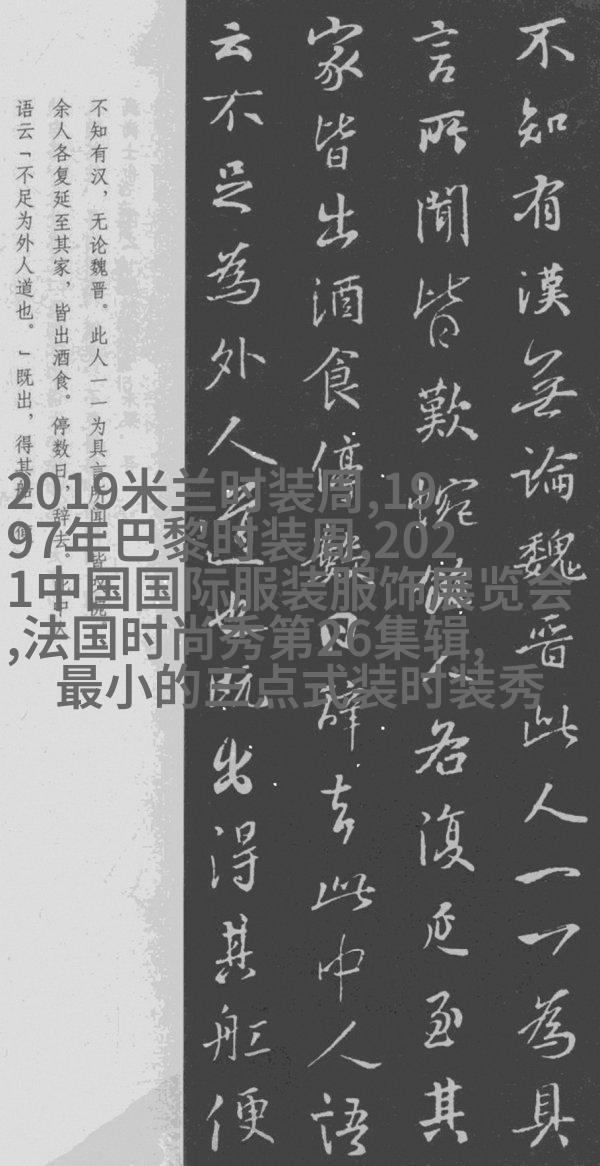 不知有漢無論魏晋此人一一為具
言所聞皆歎惋餘人各復延至其
家皆出酒食停數日辭去此中人語
云不足為外人道也既出得其舡便
不知有汉，无论魏晋。此人一一为具言所闻，皆叹惋。
余人各复延至其家，皆出酒食。停数日，辞去。此中人
语云「不足为外人道也。」既出，得其船，
2019米兰时装周,19
97年巴黎时装周,202
1中国国际服装服饰展览会
,法国时尚秀第26集辑,
最小的三点式装时装秀